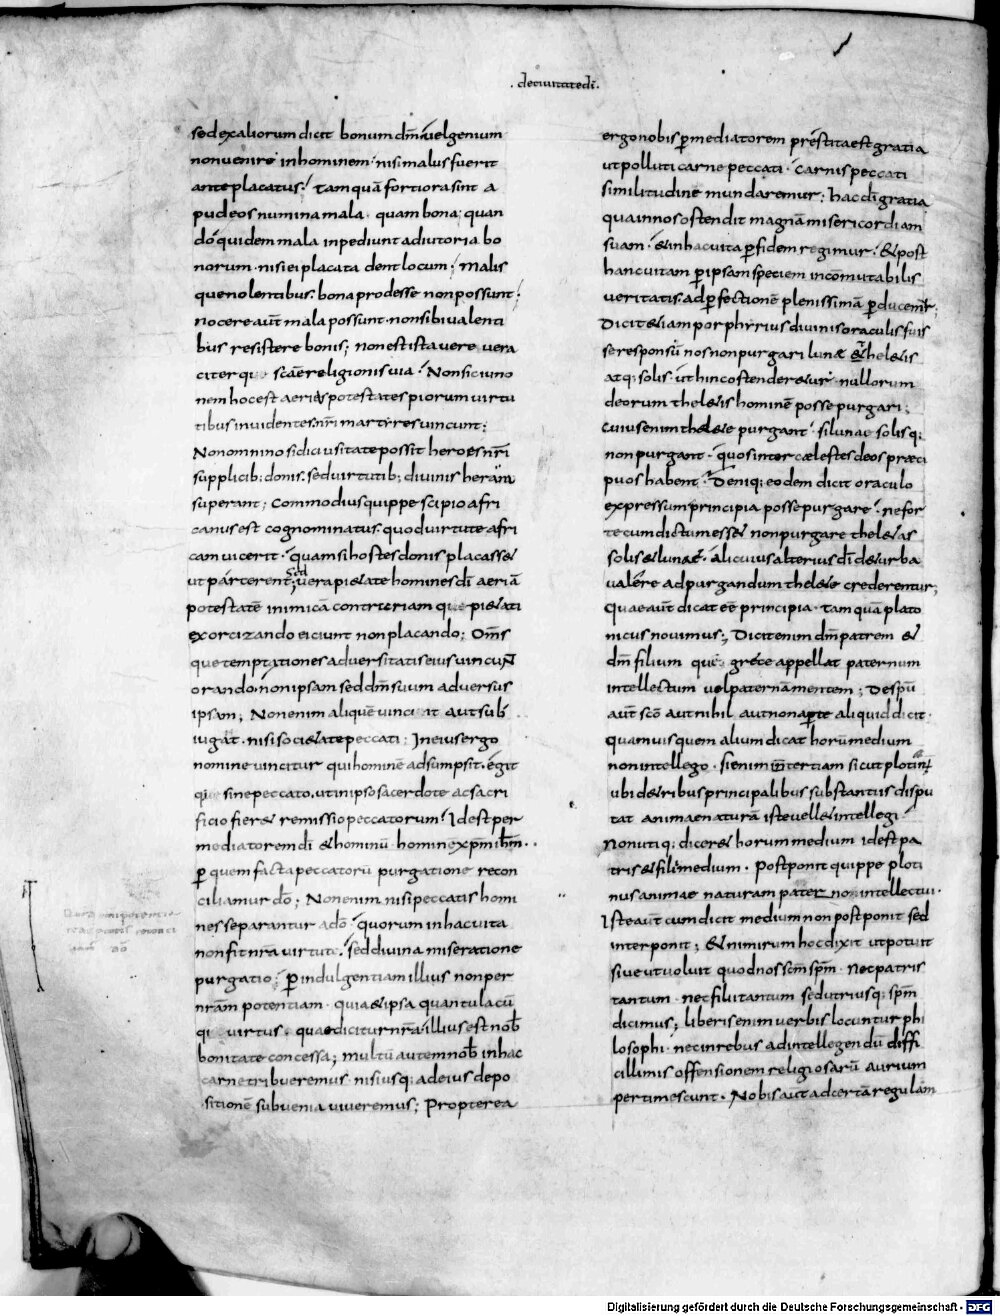 . deciuitatedi .
sedexaliorum dicit bonum dm̄ uel genium
non uenire in hominem · nisi malus fuerit
ante placatus; tam quā fortiora sint a
pud eos numina mala · quam bona; quan
do quidem mala inpediunt adiutoria bo
norum · nisi ei placata dent locum; malis
que nolentibus · bona prodesse non possunt;
nocere aut̄ mala possunt · non sibi ualenti
bus resistere bonis; non est ista uere uera
citer que scāe religionis uia; Non sic iuno
nem hoc est aerias potestates piorum uirtu
tibus inuidentes · nr̄i martyres uincunt;
Non omnino si dici usitate possit heroes nr̄i
supplicib; donis · sed uirtutib; diuinis heram
superant; Commodius quippe scipio afri
canus est cognominatus · quod uirtute afri
cam uicerit · quam si hostes donis placasset
ut parcerent; Sed uera pietate homines dī aeriā
potestatē inimicā contrariam que pietati
exorcizando eiciunt non placando; Om̄s
que temptationes aduersitatis eius uincunt
orando · non ipsam sed dm̄ suum aduersus
ipsam; Non enim aliquē uincit aut sub
iugat · nisi societate peccati; In eius ergo
nomine uincitur qui hominē adsumpsit · egit
que sine peccato, ut in ipso sacerdote ac sacri
ficio fieret remissio peccatorum; Id est per
mediatorem dī et hominū · hominē xp̄m ihm̄ ·
ꝑ quem facta peccatorū purgatione recon
ciliamur dō; Non enim nisi peccatis homi
nes separantur a dō · quorum in hac uita
non fit nr̄a uirtute · sed diuina miseratione
purgatio; ꝑ indulgentiam illius non per
nr̄am potentiam · quia et ipsa quantulacū
que uirtus · quae dicitur nr̄a illius est nob̄
bonitate concessa; multū autem nob̄ in hac
carne tribueremus · nisi usq; ad eius depo
sitionē sub uenia uiueremus; Propterea
ergo nobis ꝑ mediatorem prestita est gratia
ut polluti carne peccati · carnis peccati
similitudine mundaremur; hac dī gratia
qua in nos ostendit magnā misericordiam
suam · et in hac uita ꝑ fidem regimur · et post
hanc uitam ꝑ ipsam speciem incōmutabilis
ueritatis · ad ꝑfectionē plenissimā ꝑducemur;
Dicit etiam porphyrius diuinis oraculis fuis
se responsū nos non purgari lunae theletis
atq; solis · ut hinc ostenderetur · nullorum
deorum theletis hominē posse purgari;
Cuius enim theletae purgant · si lunae solisq;
non purgant · quos inter caelestes deos praeci
puos habent; Deniq; eodem dicit oraculo
expressum principia posse purgare · ne for
te cum dictum esset non purgare theletas
solis et lunae · alicuius alterius dī de turba
ualere ad purgandum theletae crederentur;
Quae aut̄ dicat eē principia · tam quā plato
nicus nouimus; Dicit enim dm̄ patrem et
dm̄ filium que grece appellat paternum
intellectum uel paternā mentem; De spū
aut̄ scō aut nihil aut non aperte aliquid dicit ·
quamuis quem alium dicat horū medium
non intellego · si enim tertiam sicut plotinus
ubi de tribus principalibus substantiis dispu
tat animae naturā iste uellet intellegi ·
Non utiq; diceret horum medium id est pa
tris et filii medium · Postponit quippe ploti
nus animae naturam paterno intellectui ·
Iste aut̄ cum dicit medium non postponit sed
interponit; Et nimirum hoc dixit ut potuit
siue ut uoluit quod nos scm̄ spm̄ · nec patris
tantum · nec filii tantum sed utriusq; spm̄
dicimus; liberis enim uerbis locuntur phi
losophi · nec in rebus ad intellegendū diffi
cillimis offensionem religiosarū aurium
pertimescunt · Nobis aut̄ ad certā regulam